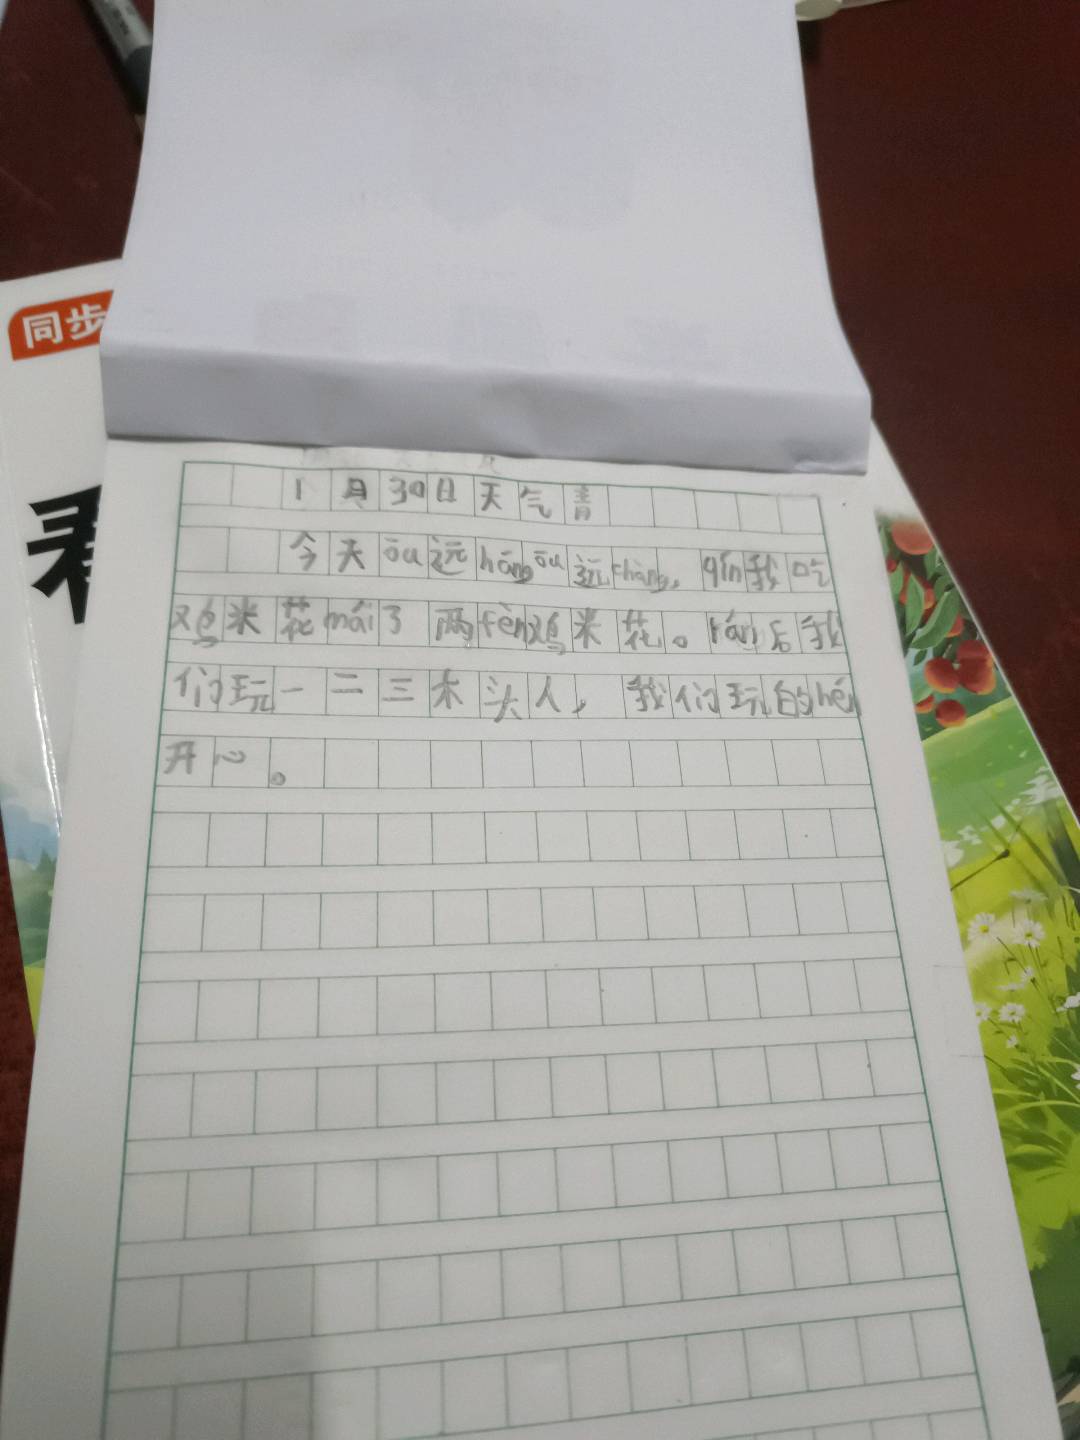 同步
1月30日天气青
今天ōu远hāng ōu远chàng，qǐn我吃
鸡米花mǎi了两fèn鸡米花。rán后我
们玩一二三木头人，我们玩的hěn
开心。